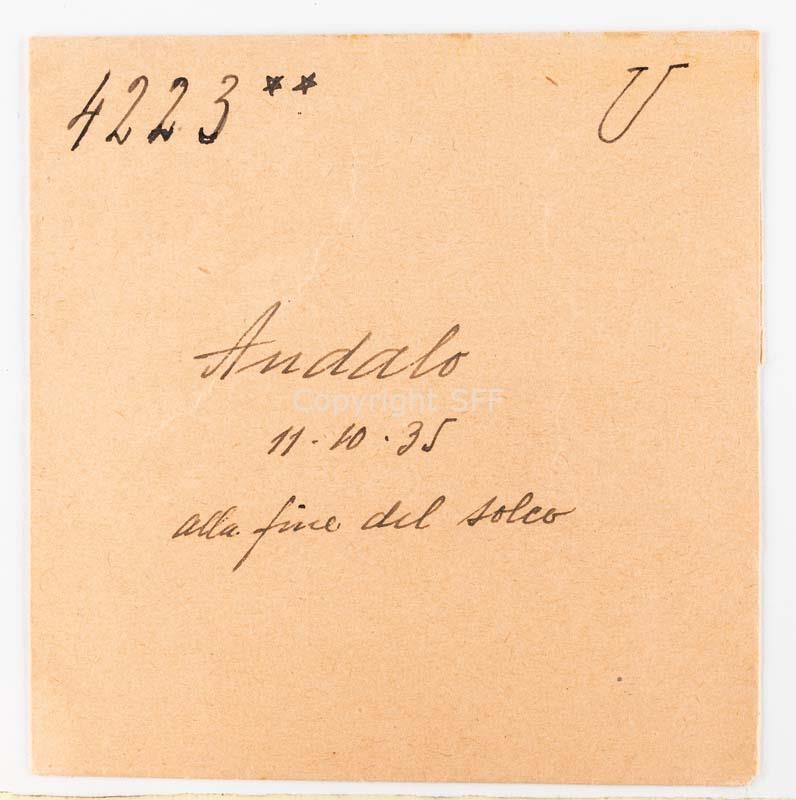 4223** U
Andalo
Copyright SFF
11-10.35
alla fine del solco